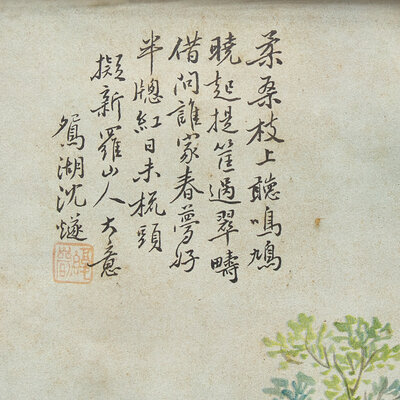 柔桑枝上聽鳴鳩
曉起提筐過翠疇
借問誰家春夢好
半窗紅日未梳頭
擬新羅山人大意
鴛湖沈燧